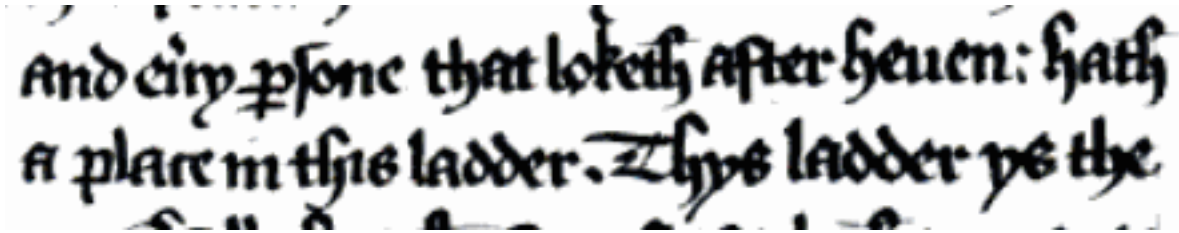 and eu͛y ꝑſone that loketh after heuen: hath
a place in this ladder. Thys ladder ys the